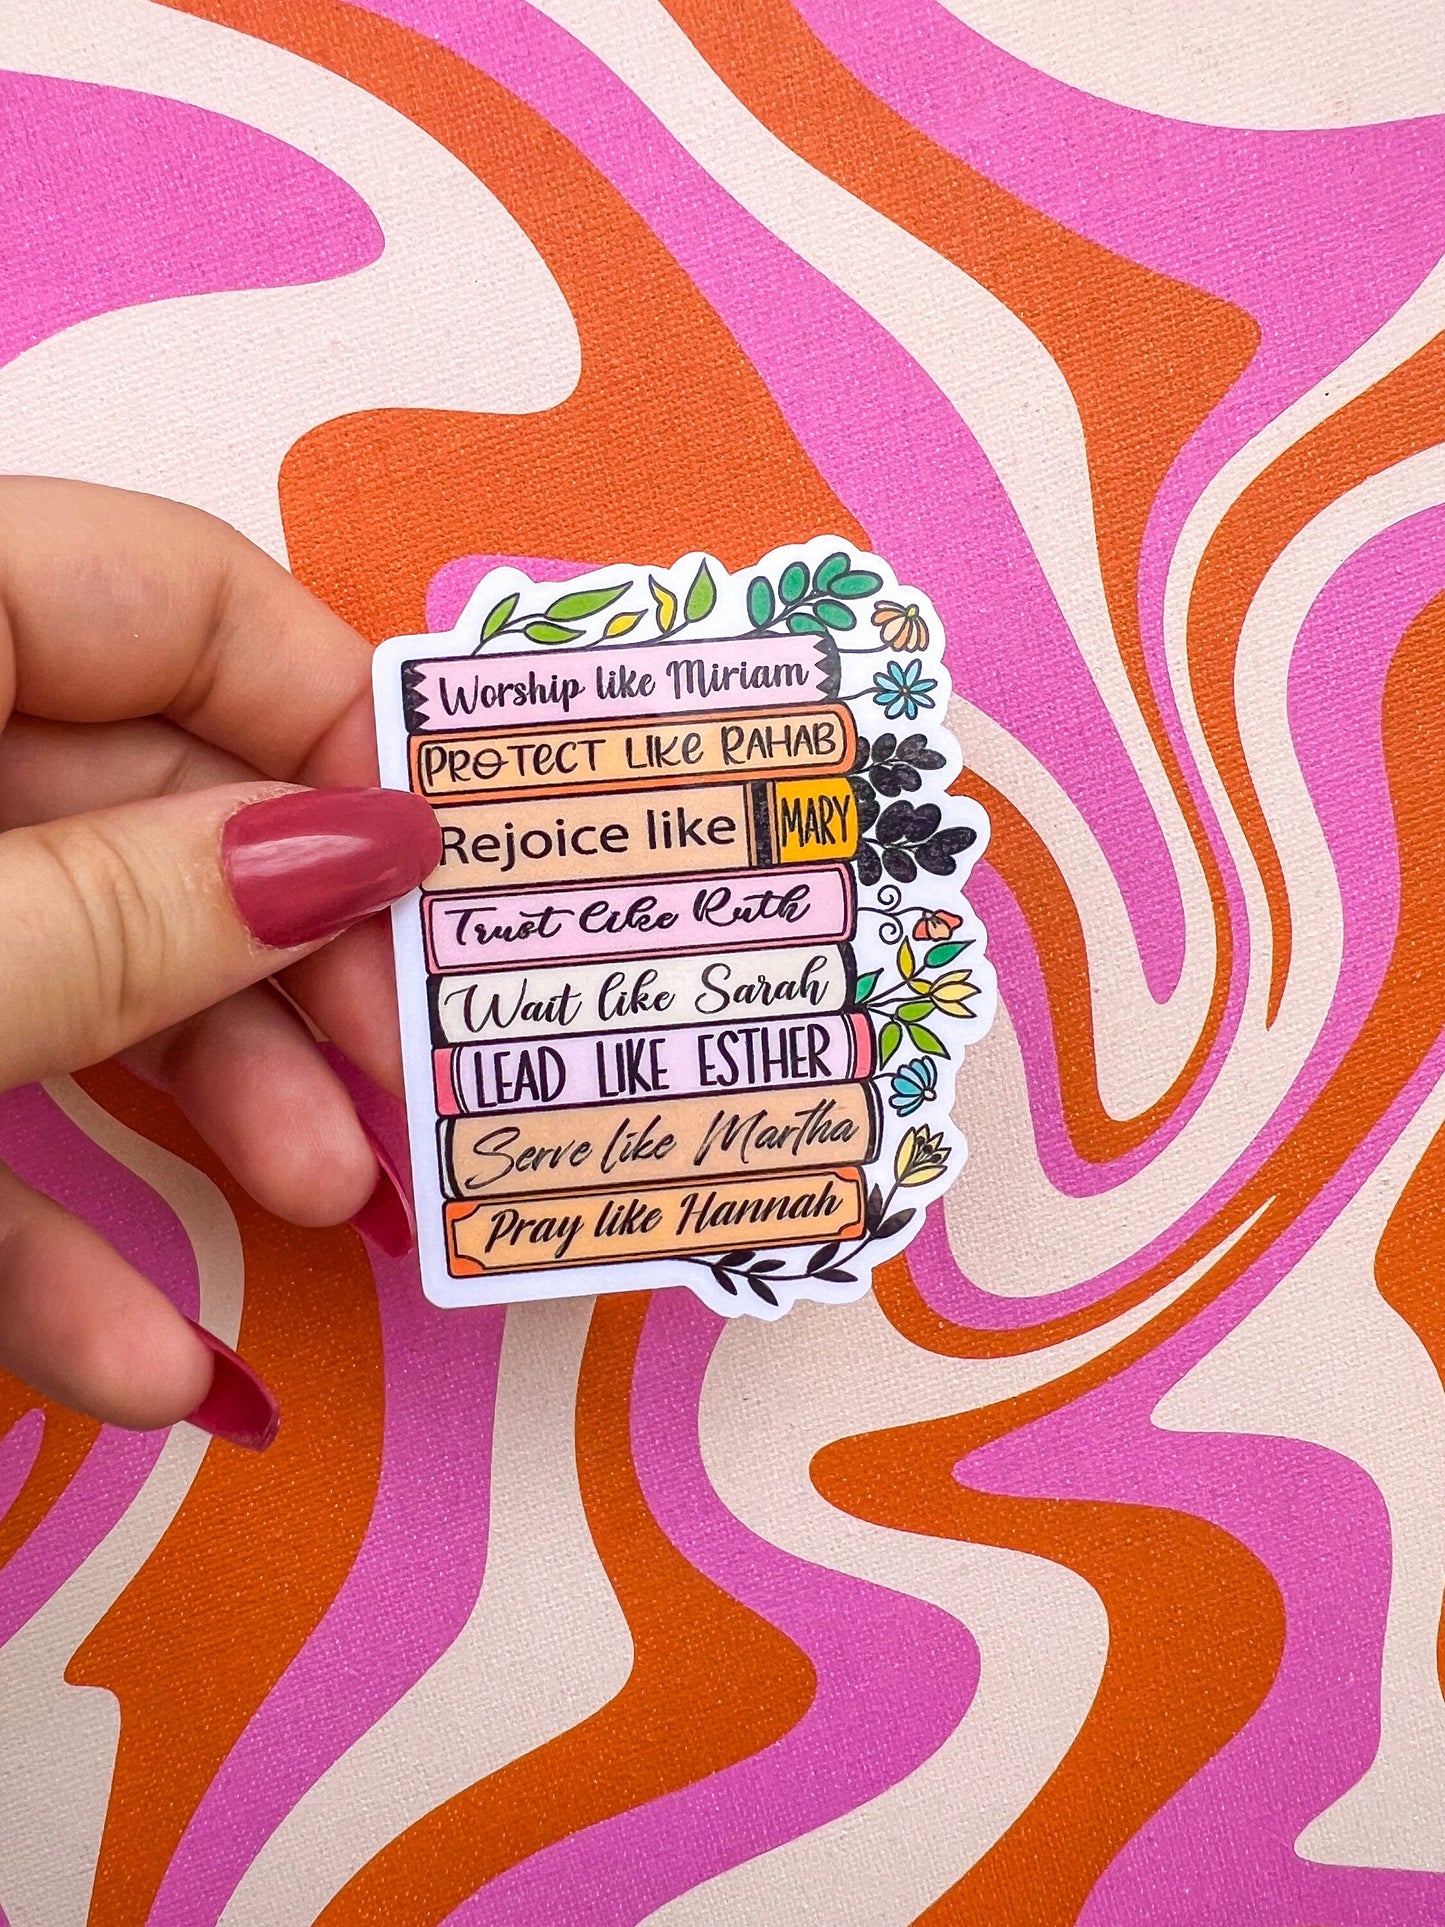 Worship like Miriam
PROTECT LIKE RAHAB
Rejoice like MARY
Trust like Ruth
Wait like Sarah
LEAD LIKE ESTHER
Serve like Martha
Pray like Hannah